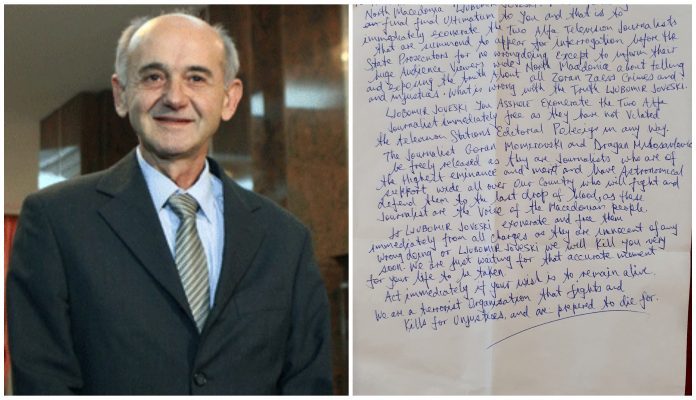 North Macedonia "LJUBOMIR JOVESKI.
an final final Ultimatum to You and that is to
immediately exonerate the Two Alfa Television Journalists
that are summond to appear for interrogation before the
State Prosecutors for no wrongdoing Except to inform their
huge Audience Viewers wide North Macedonia about telling
and exposing the truth About all Zoran Zaevs Crimes and
and injustices. What is wrong with the Truth LJUBOMIR JOVESKI.
LJUBOMIR JOVESKI You Asshole Exonerate the Two Alfa
Journalist immediately free as they have not Violated
the television Stations Editorial in any way.
The Journalist Goran Momirovski and Dragan
be freely released as they are Journalists who are of
the Highest eminance and merit and have Astronomical
support wide all over Our Country who will fight and
defend them to the last drop of blood, as these
Journalist are the Voice of the Macedonian people.
LJUBOMIR JOVESKI exonerate and free them
immediately from all charges as they are innocent of any
wrong doing or LJUBOMIR JOVESKI we will Kill you very
soon. We are just waiting for that accurate moment
for your life to be taken.
Act immediately if your wish is to remain alive.
We are a terrorist Organisation that fights and
Kills for Unjustices, and are prepared to die for.